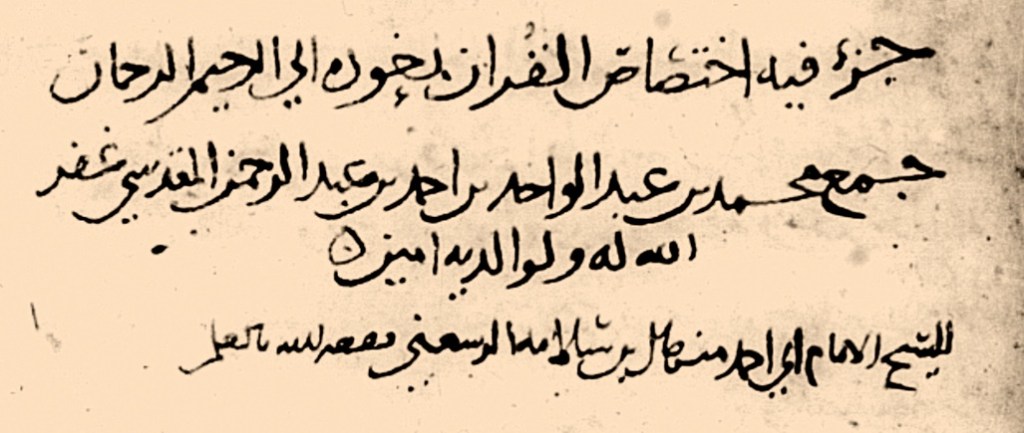 جزء فيه اختصاص القران بعوده الى الرحيم الرحمان
جمع محمد بن عبد الواحد بن احمد بن عبد الرحمن المقدسي غفر
الله له ولوالديه امين
للشيخ الامام ابي احمد بن نفعه الله بالعلم